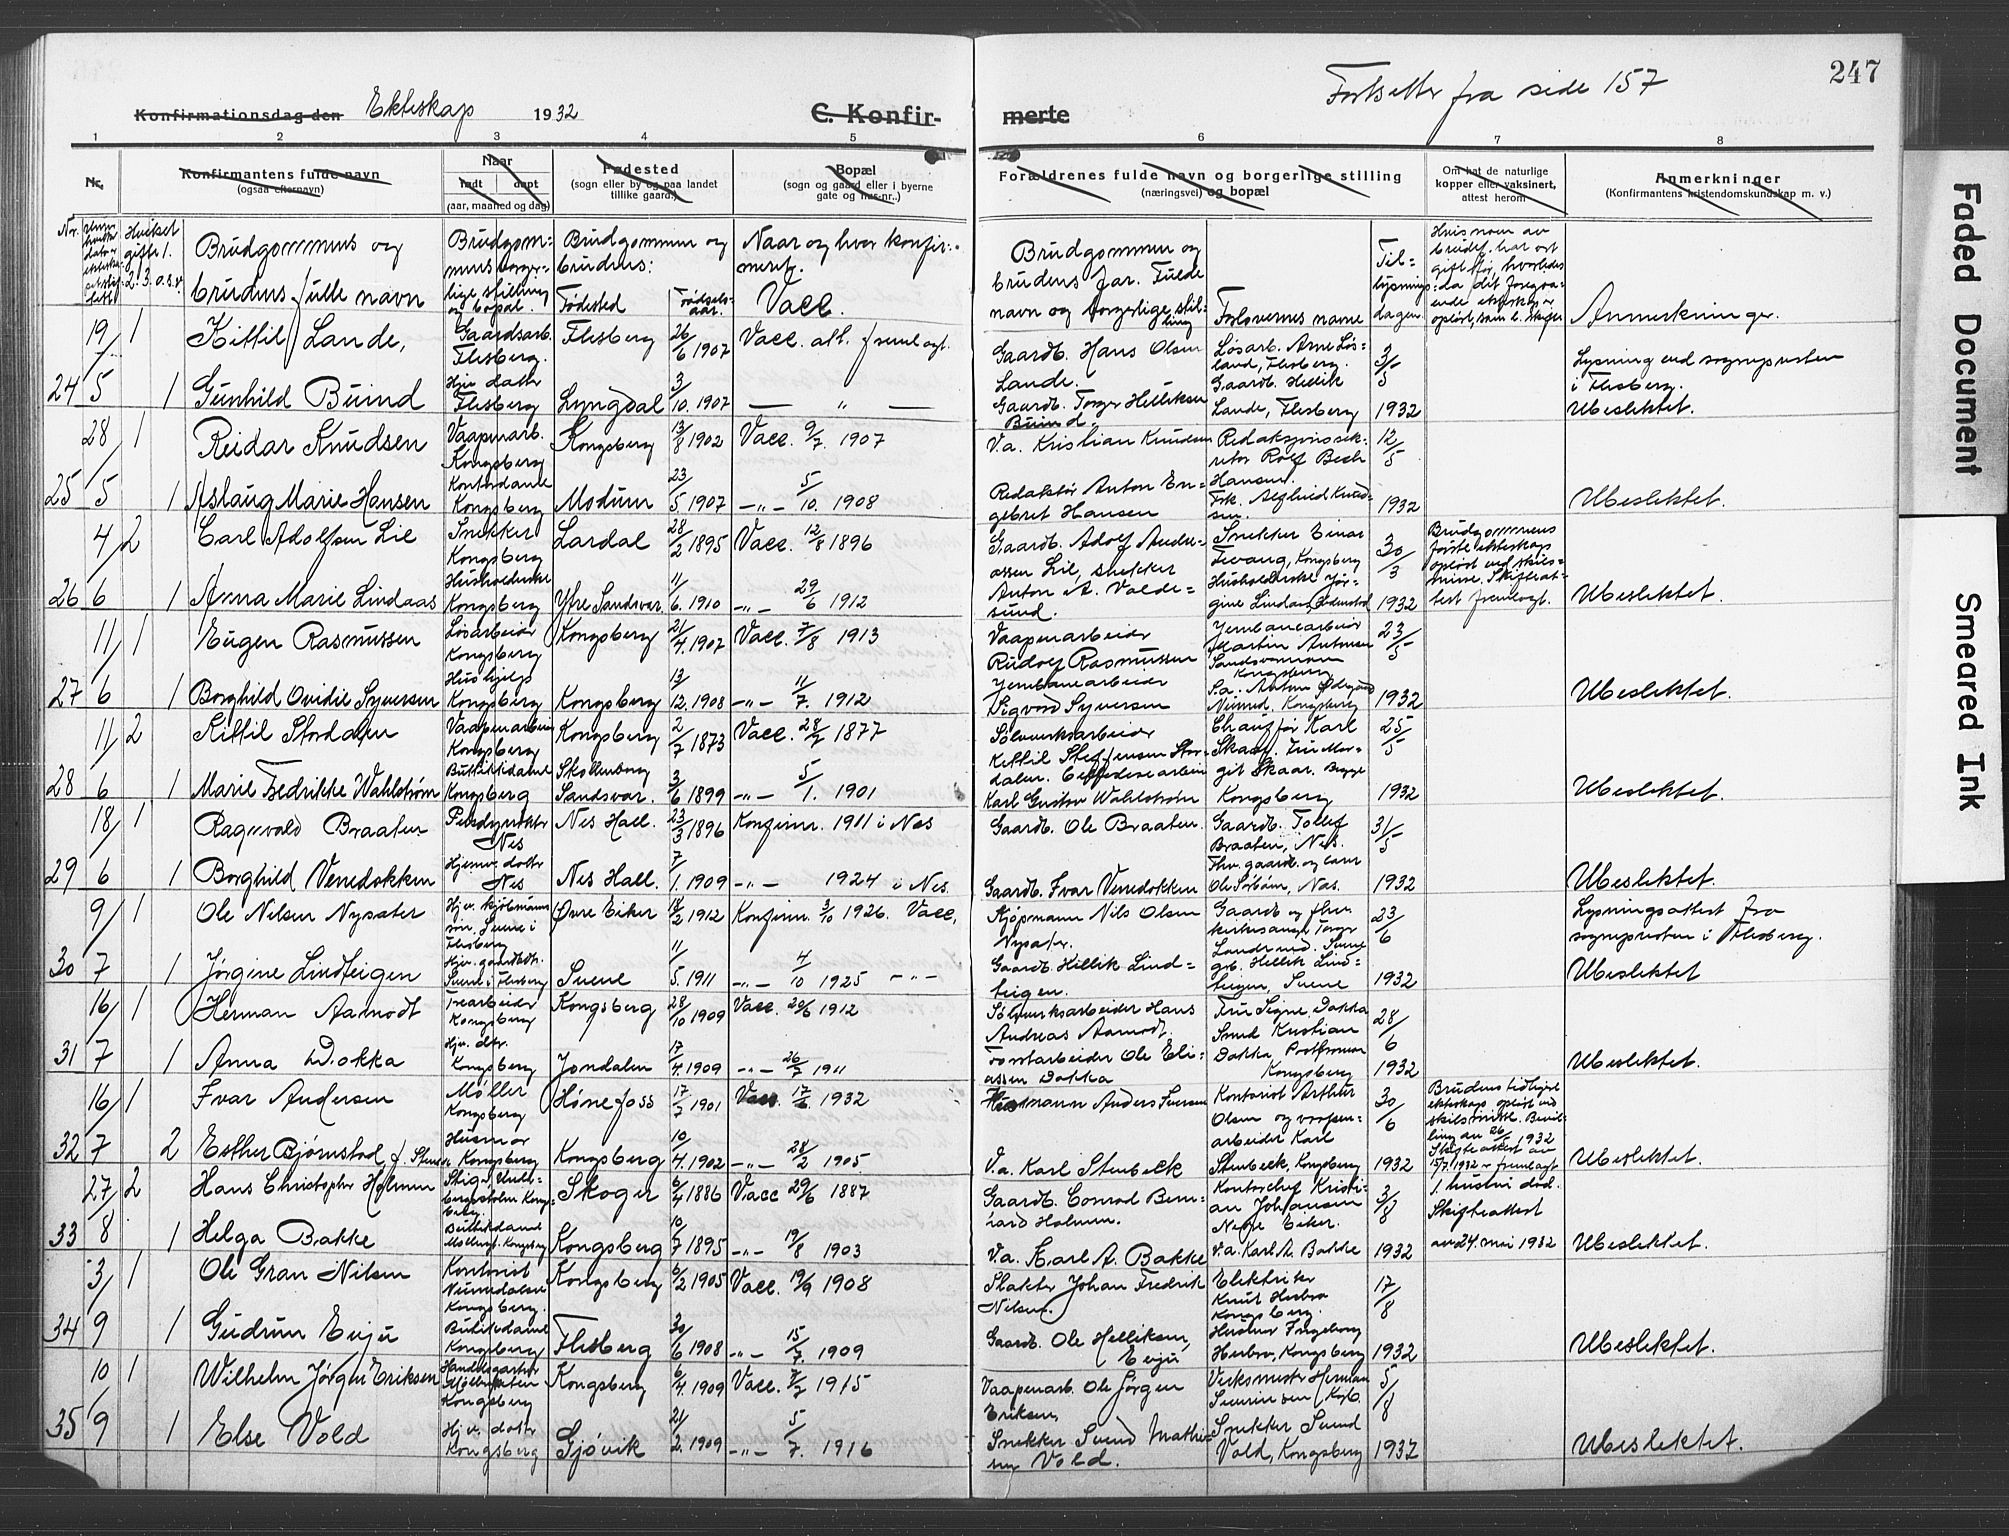 247
Fortsetter fra side 157
Konfirmationsdag den Ekteskap 1932 C. Konfir-
merte
1 2 3 4 5 6 7 8
Nr. Konfirmantens fulde navn (ogsaa efternavn)
Naar født døpt (aar, maaned og dag)
Fødested (sogn eller by og paa landet tillike gaard.)
Bopæl (sogn og gaard eller i byerne gate og hus-nr..)
Forældrenes fulde navn og borgerlige stilling (næringsvei) og bopæl
Om hat de naturlige kopper eller vaksinert, attest herom
Anmerkninger (Konfirmantens kristendomskundskap m. v.)
Nr.
Hvilket gifte 1. 2. 3. o.s.v.
Brudgommens og brudens fulle navn
Brudgommens borgerlige stilling og bopæl.
Brudgommen og brudens:
Fødested Fødselsaar.
Naar og hvor konfirmert. Vacc.
Brudgommen og brudens far. Fulde navn og borgerlige stilling
Forlovernes navne
Tillysningsdagen
Anmerkninger.
19/5 1 Kittil Lande, Gaardsarb. Flesberg. Flesberg 26/6 1907 Vacc. att. fremlagt.
Gaardb. Hans Olsen Lande. Løsarb. Arne Løsland, Flesberg. 3/5 Lysning ved sognepresten i Flesberg.
24 1 Gunhild Buind Hjv. datter Flesberg Lyngdal 3/10. 1907 — " —
Gaardb. Torger Helliksen Buind. Gaardb. Hellik Lande, Flesberg 1932 Ubeslektet.
28/5 1 Reidar Knudsen Vaapenarb. Kongsberg Kongsberg 13/8 1902 Vacc. 9/7. 1907
V.a. Kristian Knudsen Redaksjonssekretær Rolf Bech Hansen. 12/5
25 1 Aslaug Marie Hansen Kontordame Kongsberg Modum 23/5 1907 —"— 5/10. 1908
Redaktør Anton Engebret Hansen 1932 Ubeslektet.
4/6 2 Carl Adolfsen Lie Snekker Kongsberg Lardal 28/2 1895 Vacc. 12/8 1896
Gaardb. Adolf Andreassen Lie, snekker Snekker Einar Tevang, Kongsberg 30/3 Brudgommens første ekteskap opløst ved skilsmisse. Skifteattest fremlagt.
26 1 Anna Marie Lindaas Husholderske Kongsberg Ytre Sandsvær 11/6. 1910 —"— 29/6 1912
Anton A. Valdesund. Husholderske Jørgine Lindaas 1932 Ubeslektet.
11/6 1 Eugen Rasmussen Løsarbeider Kongsberg Kongsberg 21/4 1907 Vacc. 7/8 1913
Vaapenarbeider Rudolf Rasmussen Jernbanearbeider Martin Antonsen 23/5
27 1 Borghild Ovidie Syversen Hushjelp Kongsberg Kongsberg 13/12. 1908 —"— 11/7. 1912
Jernbanearbeider Sigvard Syversen 1932 Ubeslektet.
11/6 2 Kittil Stordalen Vaapenarbeider Kongsberg Kongsberg 2/7 1873 Vacc. 28/7 1877
Sølvverksarbeider Kittil Steffensen Stordalen. Chauffør Karl Skaar. Fru Margit Skaar. Begge Kongsberg 25/5
28 1 Marie Fredrikke Wahlstrøm Butikkdame Kongsberg Skollenborg Sandsvær. 3/6 1899 —"— 5/1. 1901
Karl Gustav Wahlstrøm 1932 Ubeslektet.
18/6 1 Ragnvald Braaten Nes Nes Hall. 23/3 1896 Konfirm. 1911 i Nes
Gaardb. Ole Braaten. Gaardb. Tollef Braaten, Nes. 31/5
29 1 Borghild Venedokken Hjemv. datter Nes Nes Hall. 7/1. 1909 —"— 1924 i Nes.
Gaardb. Ivar Venedokken 1932 Ubeslektet.
9/7 1 Ole Nilsen Nysæter Øvre Eiker 18/2 1912 Konfirm. 3/10 1926. Vacc,
Kjøpmann Nils Olsen Nysæter. 23/6 Lysningsattest fra sognepresten i Flesberg.
30 1 Jørgine Lindteigen Svene i Flesberg Svene 11/5. 1911 —"— 4/10 1925 —"—
Gaardb. Hellik Lindteigen. Hellik Lindteigen, Svene 1932 Ubeslektet
16/7 1 Herman Aamodt Trearbeider Kongsberg Kongsberg 28/10 1909 Vacc. 20/6 1912
Sølvverksarbeider Hans Andreas Aamodt. Fru Signe Dokka 28/6
31 1 Anna Dokka Hjv. dtr. Kongsberg Jondalen 17/4. 1909 —"— 26/7 1911
Forstarbeider Ole Eliassen Dokka Smed Kristian Dokka Kongsberg 1932 Ubeslektet.
16/7 1 Ivar Andersen Møller Kongsberg Hønefoss 17/7 1901 Vacc 1932
Anders Iversen Kontorist Arthur Olsen og vaapenarbeider Karl Stenbeck, Kongsberg 30/6 Brudens tidligere ekteskap opløst ved skilsmisse.
32 2 Esther Bjørnstad f. Husmor Kongsberg Kongsberg 10/4. 1902 —"— 28/2 1905
V.a. Karl Stenbeck 1932 Ubeslektet.
27/8 2 Hans Christopher Holmen Skoger 6/4 1886 Vacc 29/6 1887
Gaardb. Conrad Bernhard Holmen. Kontorchef Kristian Johansen Nedre Eiker. 3/8 1. hustru død. Skifteattest av 24. mai 1932
33 1 Helga Bakke Butikkdame Kongsberg Kongsberg 10/7 1895 —"— 19/8 1903
V.a. Karl A. Bakke V.a. Karl A. Bakke 1932 Ubeslektet.
3/9 1 Ole Gran Nilsen Kontorist Kongsberg. Kongsberg 6/2 1905 Vacc. 19/9 1908
Slakter Johan Fredrik Nilsen. Elektriker Knut Herbro Kongsberg. 17/8
34 1 Gudrun Evju Butikkdame Kongsberg Flesberg 30/6 1908 —"— 15/7. 1909
Gaardb. Ole Helliksen Evju Husmor Ingeborg Herbro, Kongsberg 1932 Ubeslektet.
10/9 1 Wilhelm Jørgen Eriksen Kongsberg Kongsberg 6/4 1909 Vacc. 7/7 1915
Vaapenarb. Ole Jørgen Eriksen, Verksmester Herman Severinsen Kbg. 5/8
35 1 Else Vold Hjv. datter Kongsberg Gjøvik 21/2. 1909 —"— 5/7. 1916
Snekker Svend Mathiesen Vold. Snekker Svend Vold, Kongsberg 1932 Ubeslektet.
Faded Document
Smeared Ink